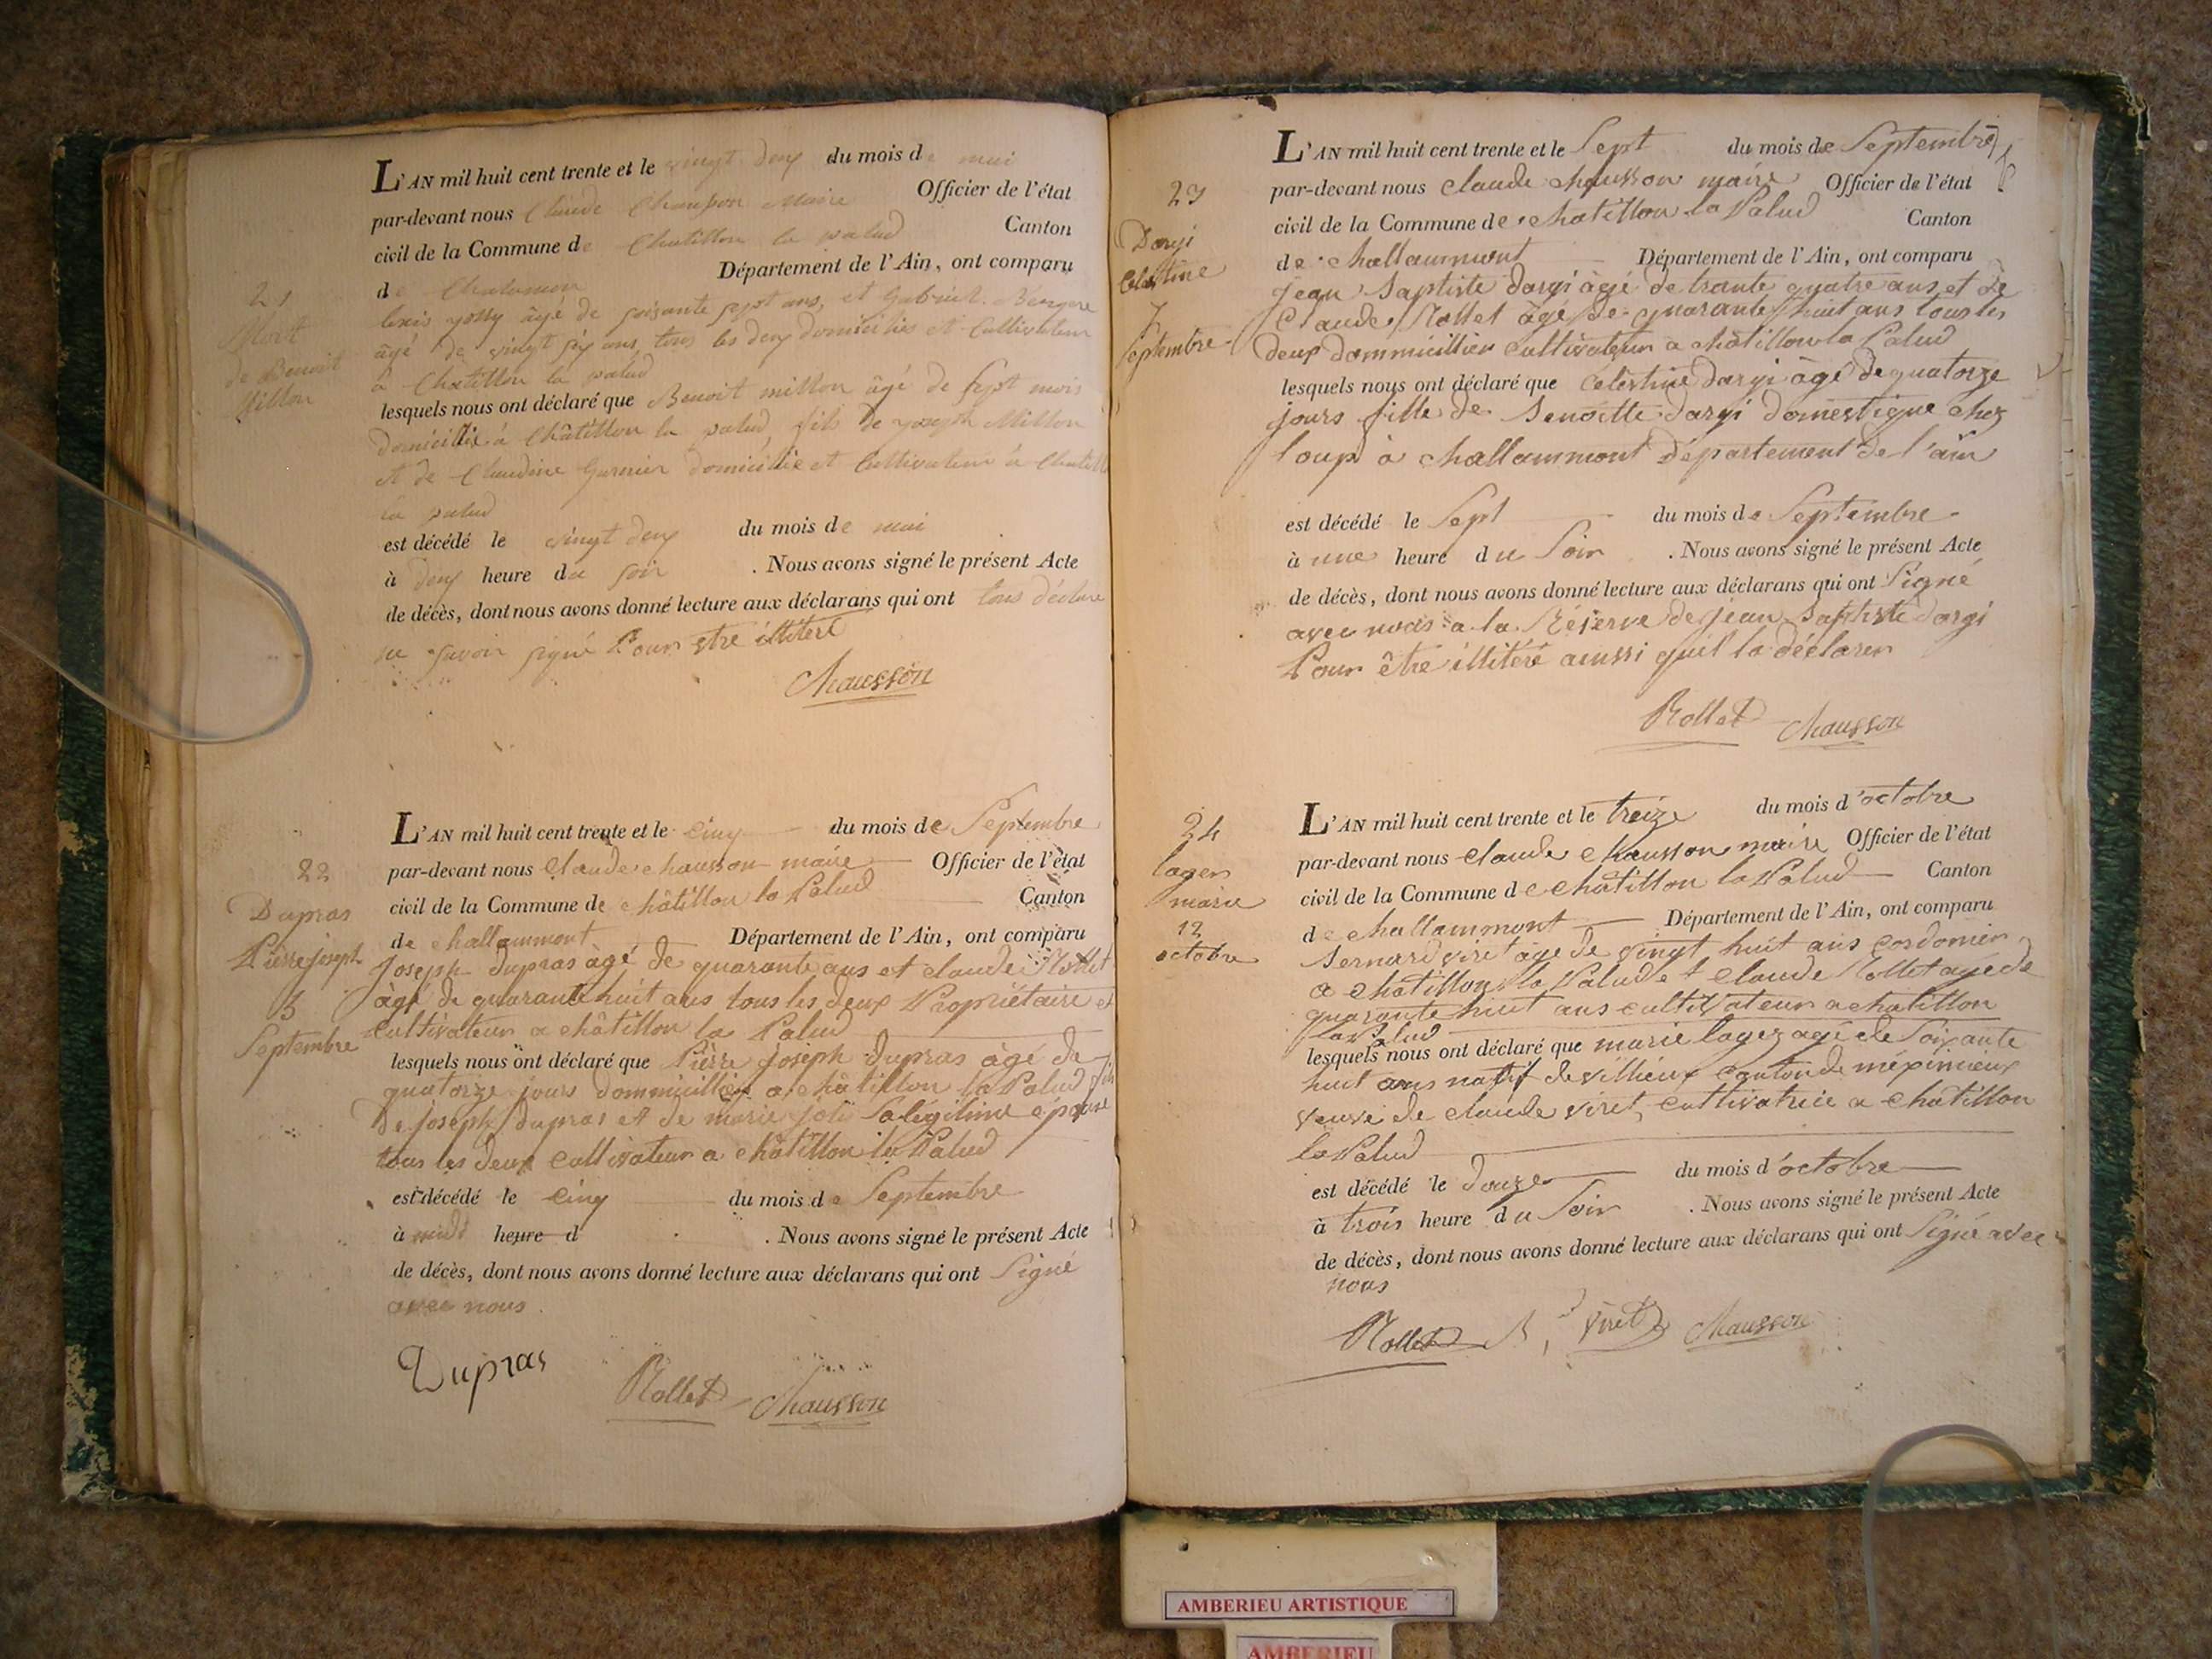 L'AN mil huit cent trente et le vingt deux du mois de mai
par-devant nous Claude Chausson Maire Officier de l'état
civil de la Commune de Chatillon la palud Canton
de Chalamon Département de l'Ain, ont comparu
âgé de soixante sept ans, et Gabriel
âgé de vingt six ans, tous les deux domiciliés et Cultivateur
à Chatillon la palud
lesquels nous ont déclaré que Benoit millon âgé de sept mois
domicilié à Châtillon la palud, fils de joseph Millon
et de Claudine Garnier domicilié et Cultivateur à
la palud
est décédé le vingt deux du mois de mai
à deux heure du soir . Nous avons signé le présent Acte
de décès, dont nous avons donné lecture aux déclarans qui ont tous déclaré
ne savoir signé Pour etre illiteré
Chausson
21
Mort
de Benoit
Millon
L'AN mil huit cent trente et le cinq du mois de Septembre
par-devant nous claude chausson maire Officier de l'état
civil de la Commune de châtillon la Palud Canton
de challammont Département de l'Ain, ont comparu
Joseph Dupras âgé de quarante ans et claude Rollet
âgé de quarante huit ans tous les deux Propriétaire et
cultivateur a châtillon la Palud
lesquels nous ont déclaré que Pierre Joseph Dupras âgé de
quatorze jours dommicillier a châtillon la Palud fils
De joseph Dupras et de marie joli Salégitime épouse
tous les deux cultivateur a châtillon la Palud
est décédé le cinq du mois de Septembre
à midi heure d . Nous avons signé le présent Acte
de décès, dont nous avons donné lecture aux déclarans qui ont Signé
avec nous.
Dupras Rollet Chausson
22
Dupras
Pierre joseph
5
Septembre
L'AN mil huit cent trente et le Sept du mois de Septembre
par-devant nous claude chausson maire Officier de l'état
civil de la Commune de chatillon la Palud Canton
de challammont Département de l'Ain, ont comparu
jean Baptiste dargi âgé de trante quatre ans et de
Claude Rollet âgé de quarante huit ans tous les
deux dommicillier cultivateur a châtillon la Palud
lesquels nous ont déclaré que Célèstine dargi âgé de quatorze
jours fille de Benoitte dargi domestique chez
loup à challammont Département de l'ain
est décédé le Sept du mois de Septembre
à une heure du Soir . Nous avons signé le présent Acte
de décès, dont nous avons donné lecture aux déclarans qui ont Signé
avec nous a la Réserve de jean Baptiste dargi
Pour être illitéré ainssi quil la déclarer
Rollet Chausson
23
Dargi
Celestine
7
Septembre
L'AN mil huit cent trente et le treize du mois d'octobre
par-devant nous claude chausson maire Officier de l'état
civil de la Commune de chatillon la Palud Canton
de challammont Département de l'Ain, ont comparu
Bernard viret âgé de vingt huit ans cordonier
a chatillon la Palud et claude Rollet âgé de
quarante huit ans cultivateur a chatillon
la Palud
lesquels nous ont déclaré que marie lagez agé de Soixante
huit ans natif de villieux canton de méximieux
veuve de claude viret, cultivatrice a châtillon
la Palud
est décédé le douze du mois d'octobre
à trois heure du Soir . Nous avons signé le présent Acte
de décès, dont nous avons donné lecture aux déclarans qui ont Signé avec
nous
Rollet B, Viret Chausson
24
marie
12
octobre
AMBERIEU ARTISTIQUE
AMBERIEU